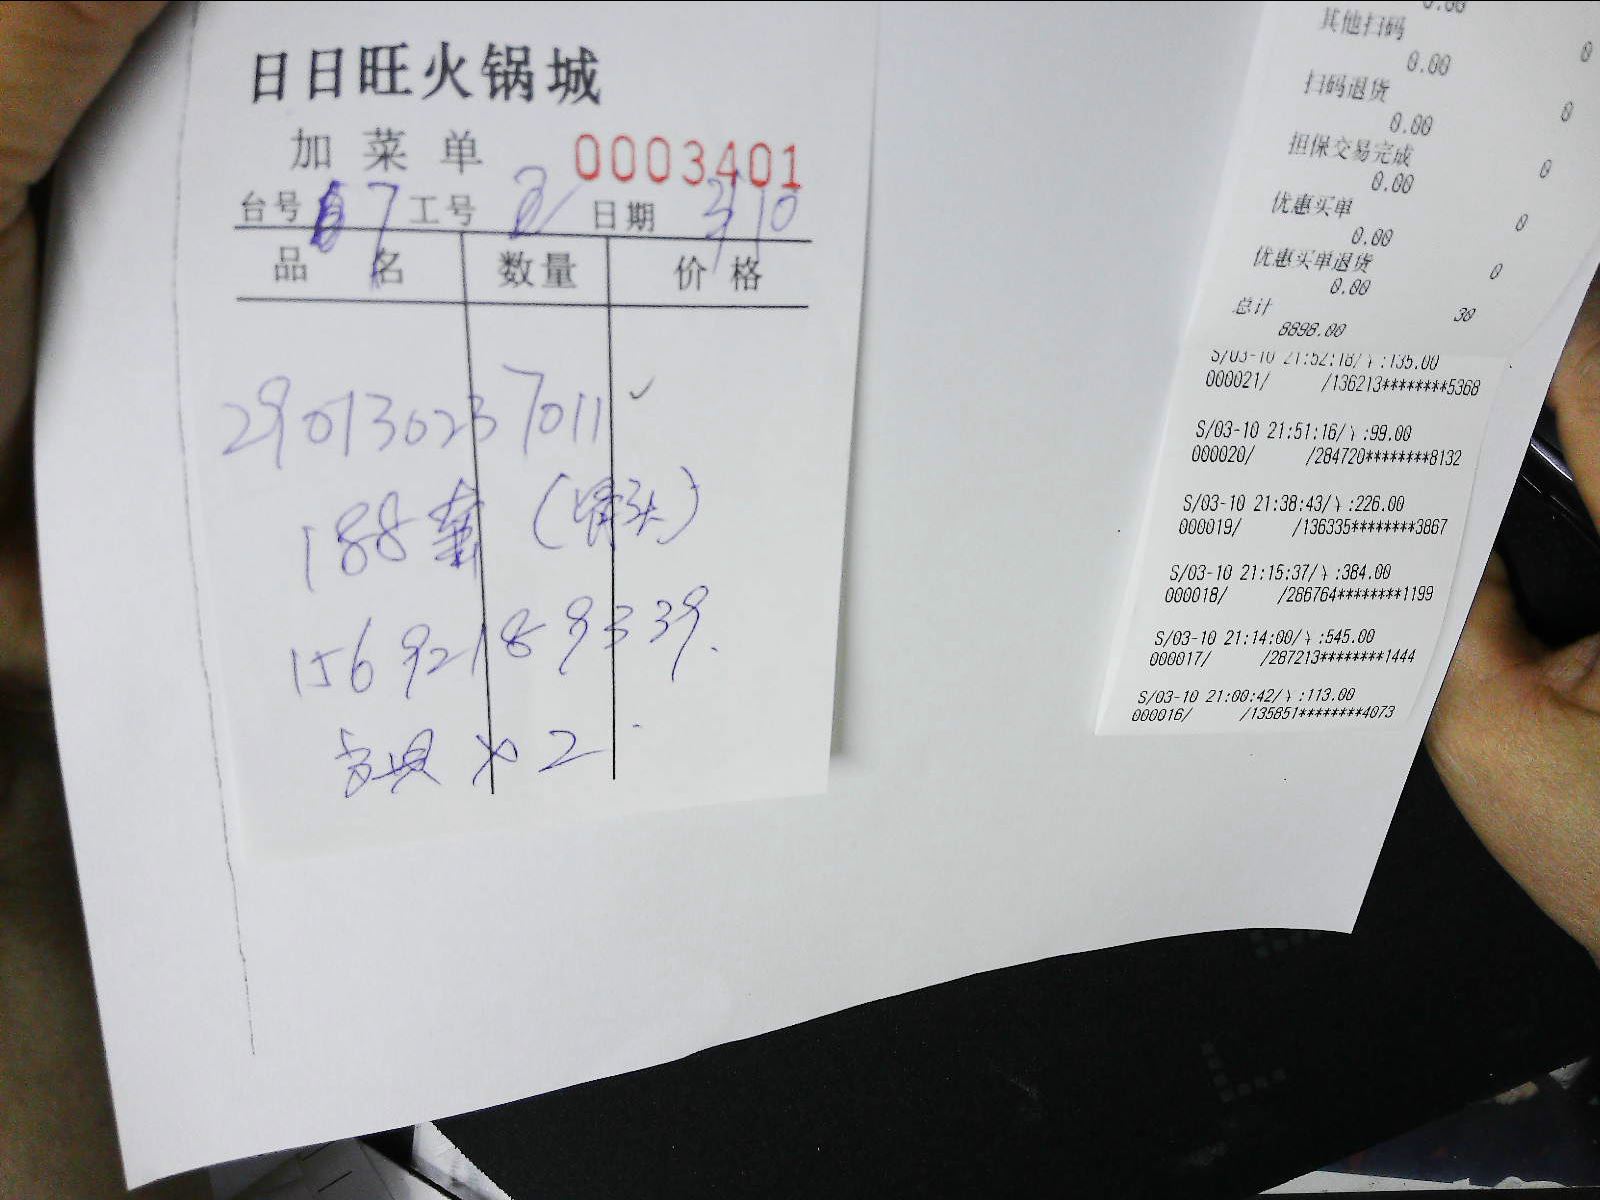 日日旺火锅城
加菜单 0003401
台号 7 工号 日期 3/10
品名 数量 价格
290130237011 ✓
188套 (骨头)
15692189339.
×2
0.00
其他扫码 0
0.00
扫码退货 0
0.00
担保交易完成 0
0.00
优惠买单 0
0.00
优惠买单退货 0
0.00
总计 30
8898.00
S/03-10 21:52:18/ :135.00
000021/ /136213********5368
S/03-10 21:51:16/ :99.00
000020/ /284720********8132
S/03-10 21:38:43/ :226.00
000019/ /136335********3867
S/03-10 21:15:37/ :384.00
000018/ /286764********1199
S/03-10 21:14:00/ :545.00
000017/ /287213********1444
S/03-10 21:00:42/ :113.00
000016/ /135851********4073